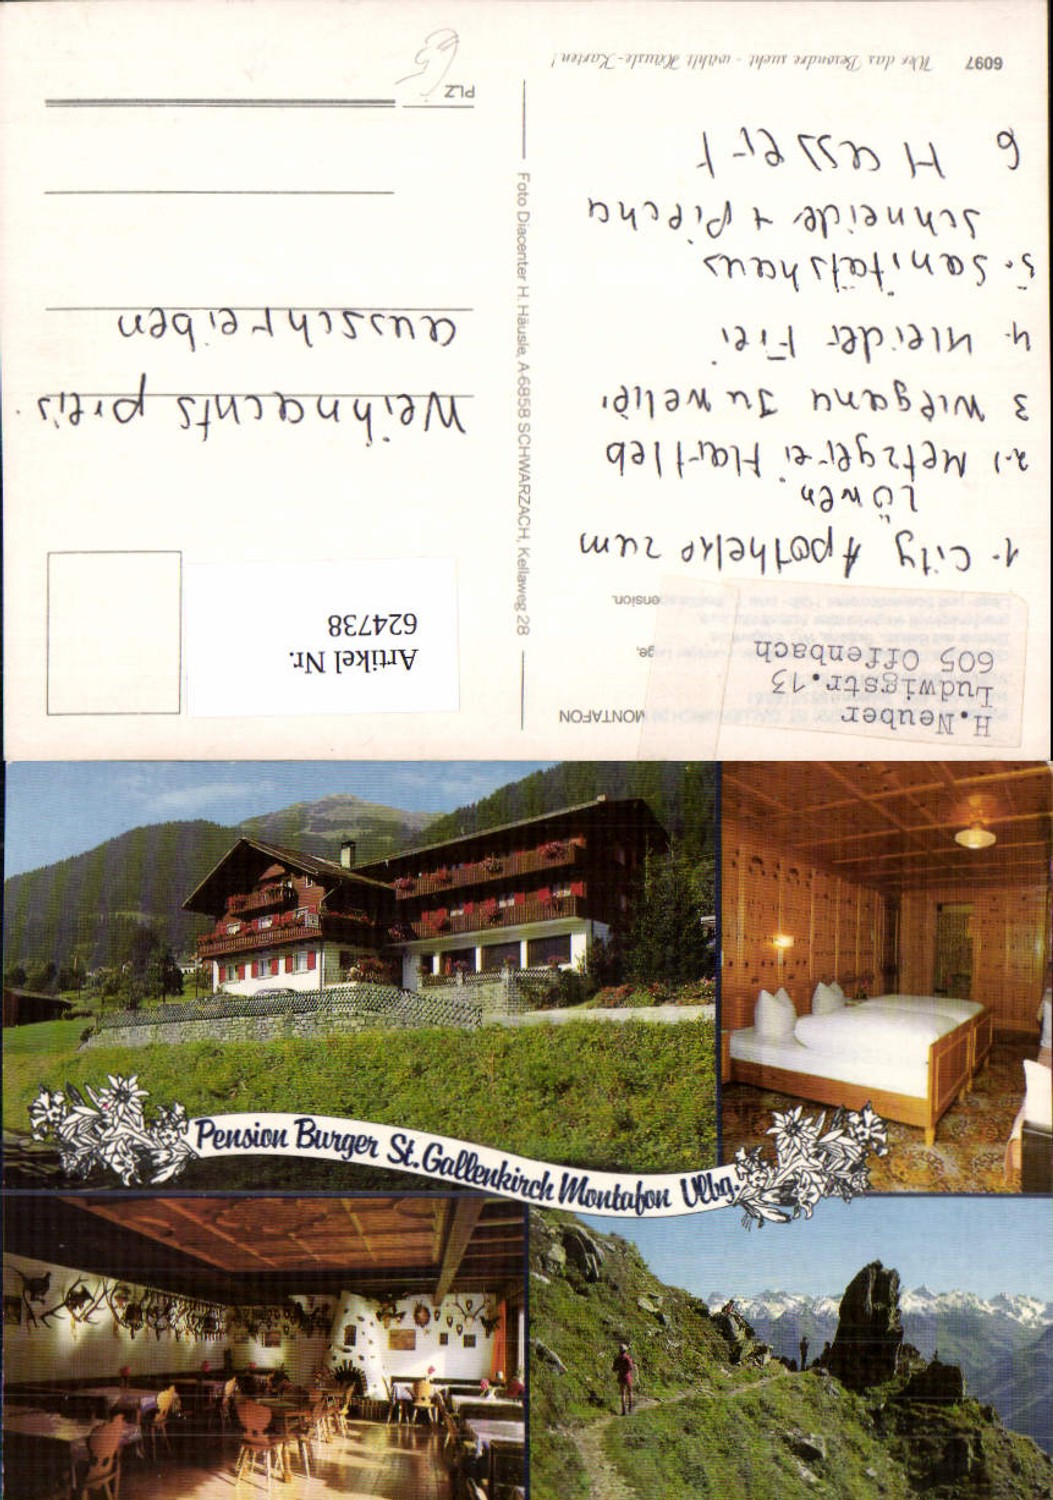 H.Neuber
Ludwigstr.13
605 Offenbach
MONTAFON
ge,
ension.
1. City Apotheke zum
Löwen
2.) Metzgerei Hartleb
3 Juwelier
4. Kleider Frei
5. Sanitätshaus
Schneider + Piecha
6 Hassert
6097
Wer das Besondre sucht - wählt Häusle-Karten!
Foto Diacenter H. Häusle, A-6858 SCHWARZACH, Kellaweg 28
Artikel Nr.
624738
Weihnachts preis
ausschreiben
PLZ
Pension Burger St. Gallenkirch Montafon Vlbg.